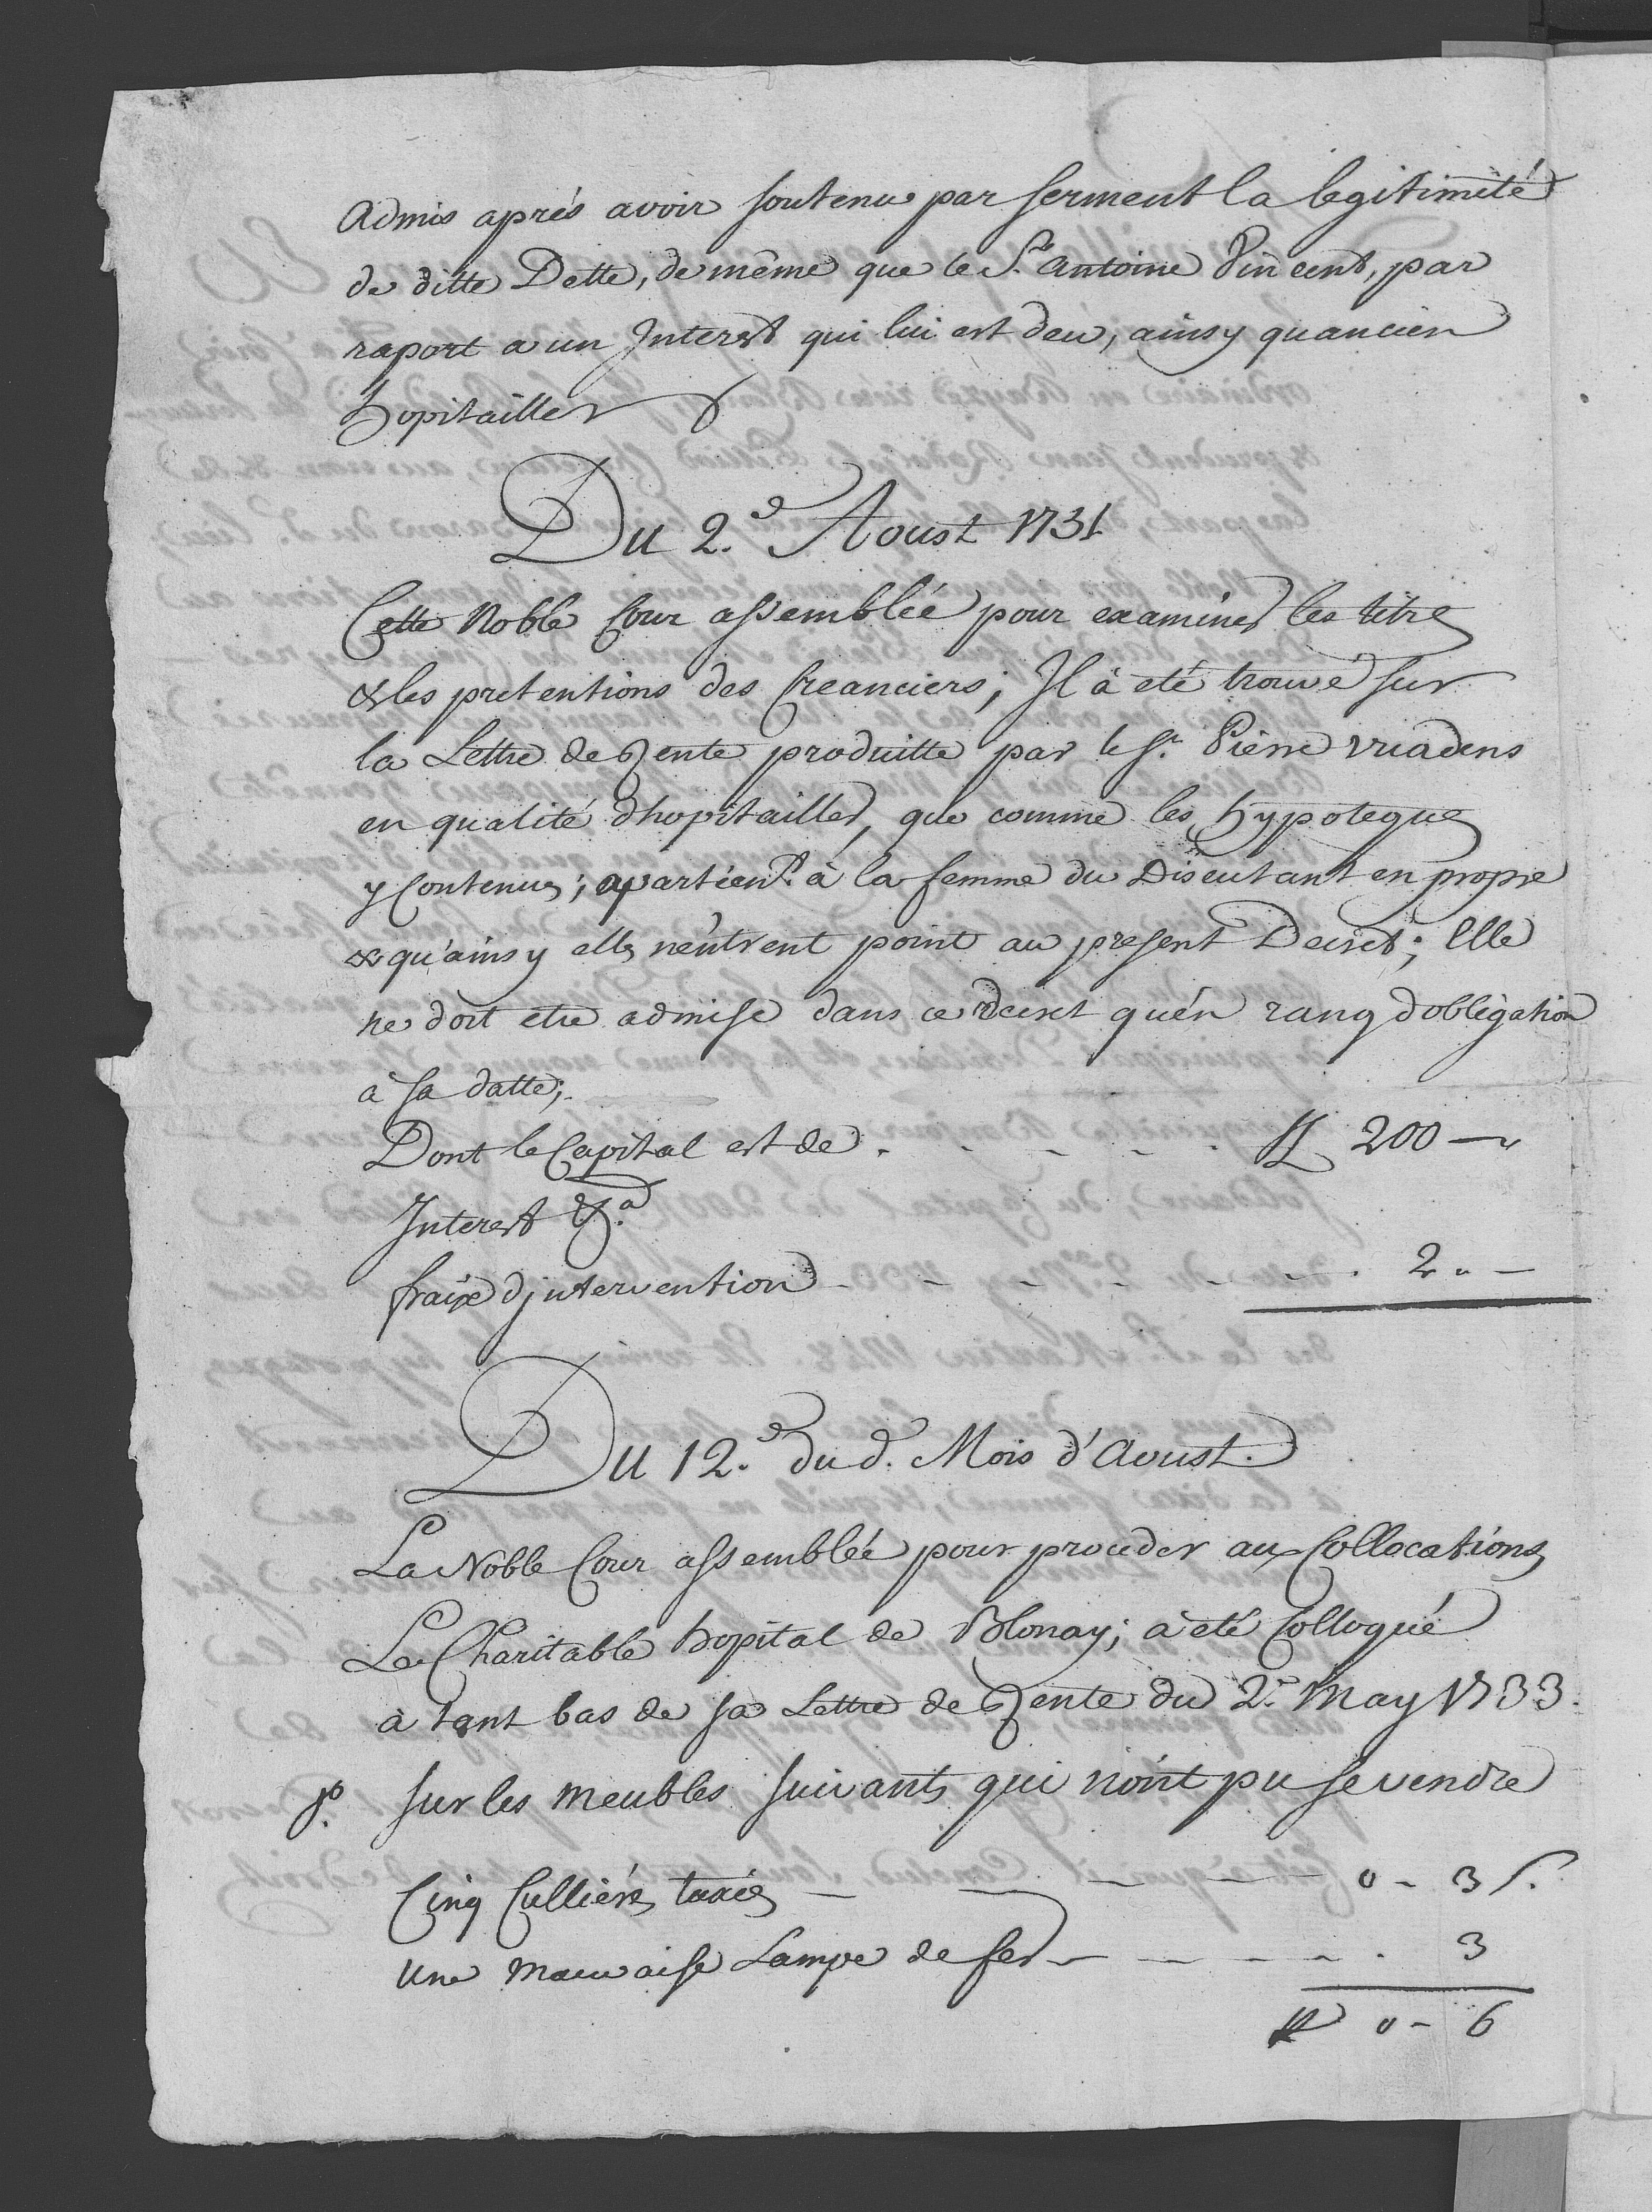 Admis aprés avoir soutenu par serment la legitimité
de ditte Dette, de même que le Sr. Antoine Vincent, par
raport a un Interest qui lui est deu, ainsy quancien
hopitailler
Du 2.e Aoust 1731
Cette Noble Cour assemblée pour examiner les titres
& les pretentions des Creanciers; Il à eté trouvé sur
la Lettre de Rente produitte par le Sr. Piérre
en qualité dhopitailler, que comme les hypoteques
y Contenues; apartient. à la femme du Discutant en propre
& qu'ainsy elles n'entrent point au present Decret; Elle
ne doit etre admise dans ce decret qu'én rang dobligation
à sa datte;
Dont le Capital est de . - - - . 200 —
Interest &.a
fraix djntervention - - - - - - . 2 " —
Du 12.e du d. Mois d'Aoust.
La Noble Cour assemblée pour proceder aux Collocations
Le Charitable hopital de Blonay; à eté Colloqué
à tant bas de sa Lettre de Rente du 2.e May 1733.
po. sur les meubles suivants qui nont pu se vendre
Cinq Culliéres taxées — — — — 0 - 3 s.
Une mauvaise Lampe de fer - - - - . 3
0 - 6